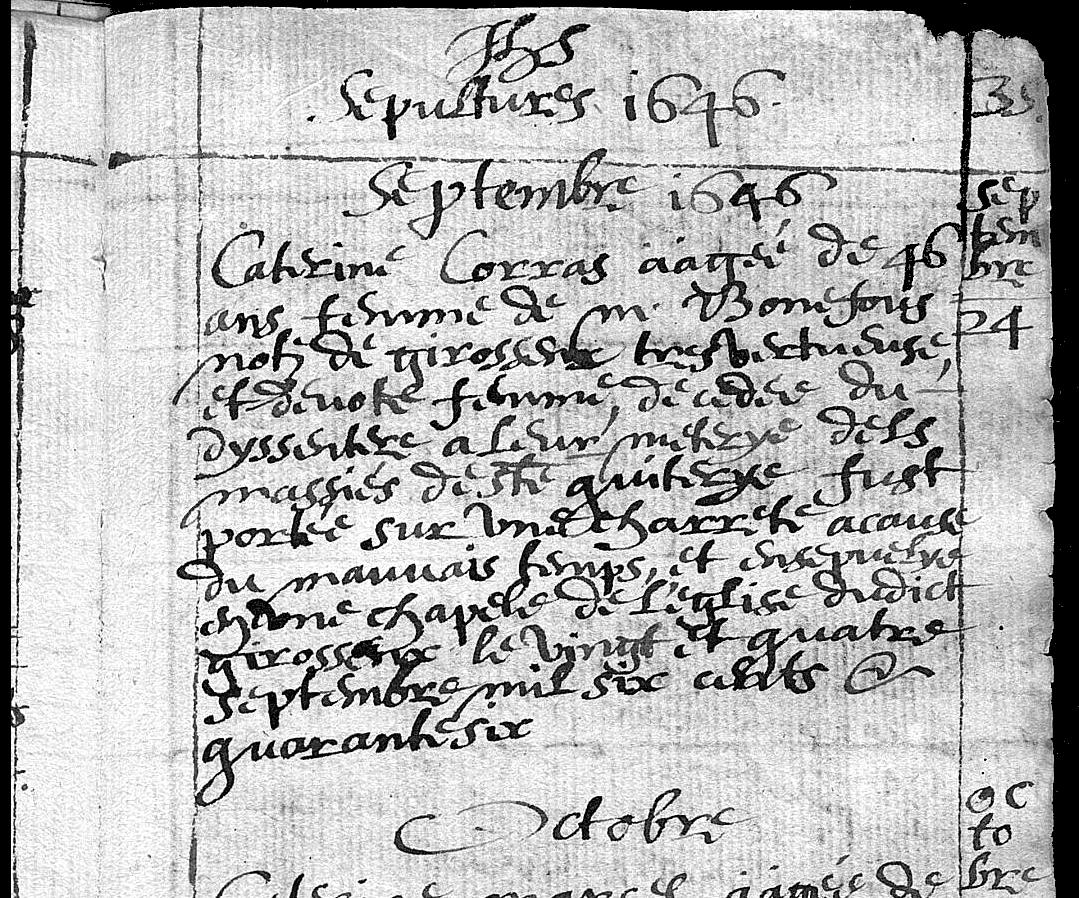 Jhs
Sepultures 1646.
35.
Septembre 1646
Sep
tem
bre
24
Caterine Corras aagée de 46
ans femme de m. Bonefous
not de girossenx tresvertueuse,
et devote femme, decedée du
dyssentere a leur meterye dels
massiés de ste quiterye fust
portée sur une charrete acause
du mauvais temps, et ensepvelye
en une chapele de l'eglise dudict
girossenx le vingt et quatre
septembre mil six cents &
quarante six
Octobre
oc
to
bre
Caterine aagée de